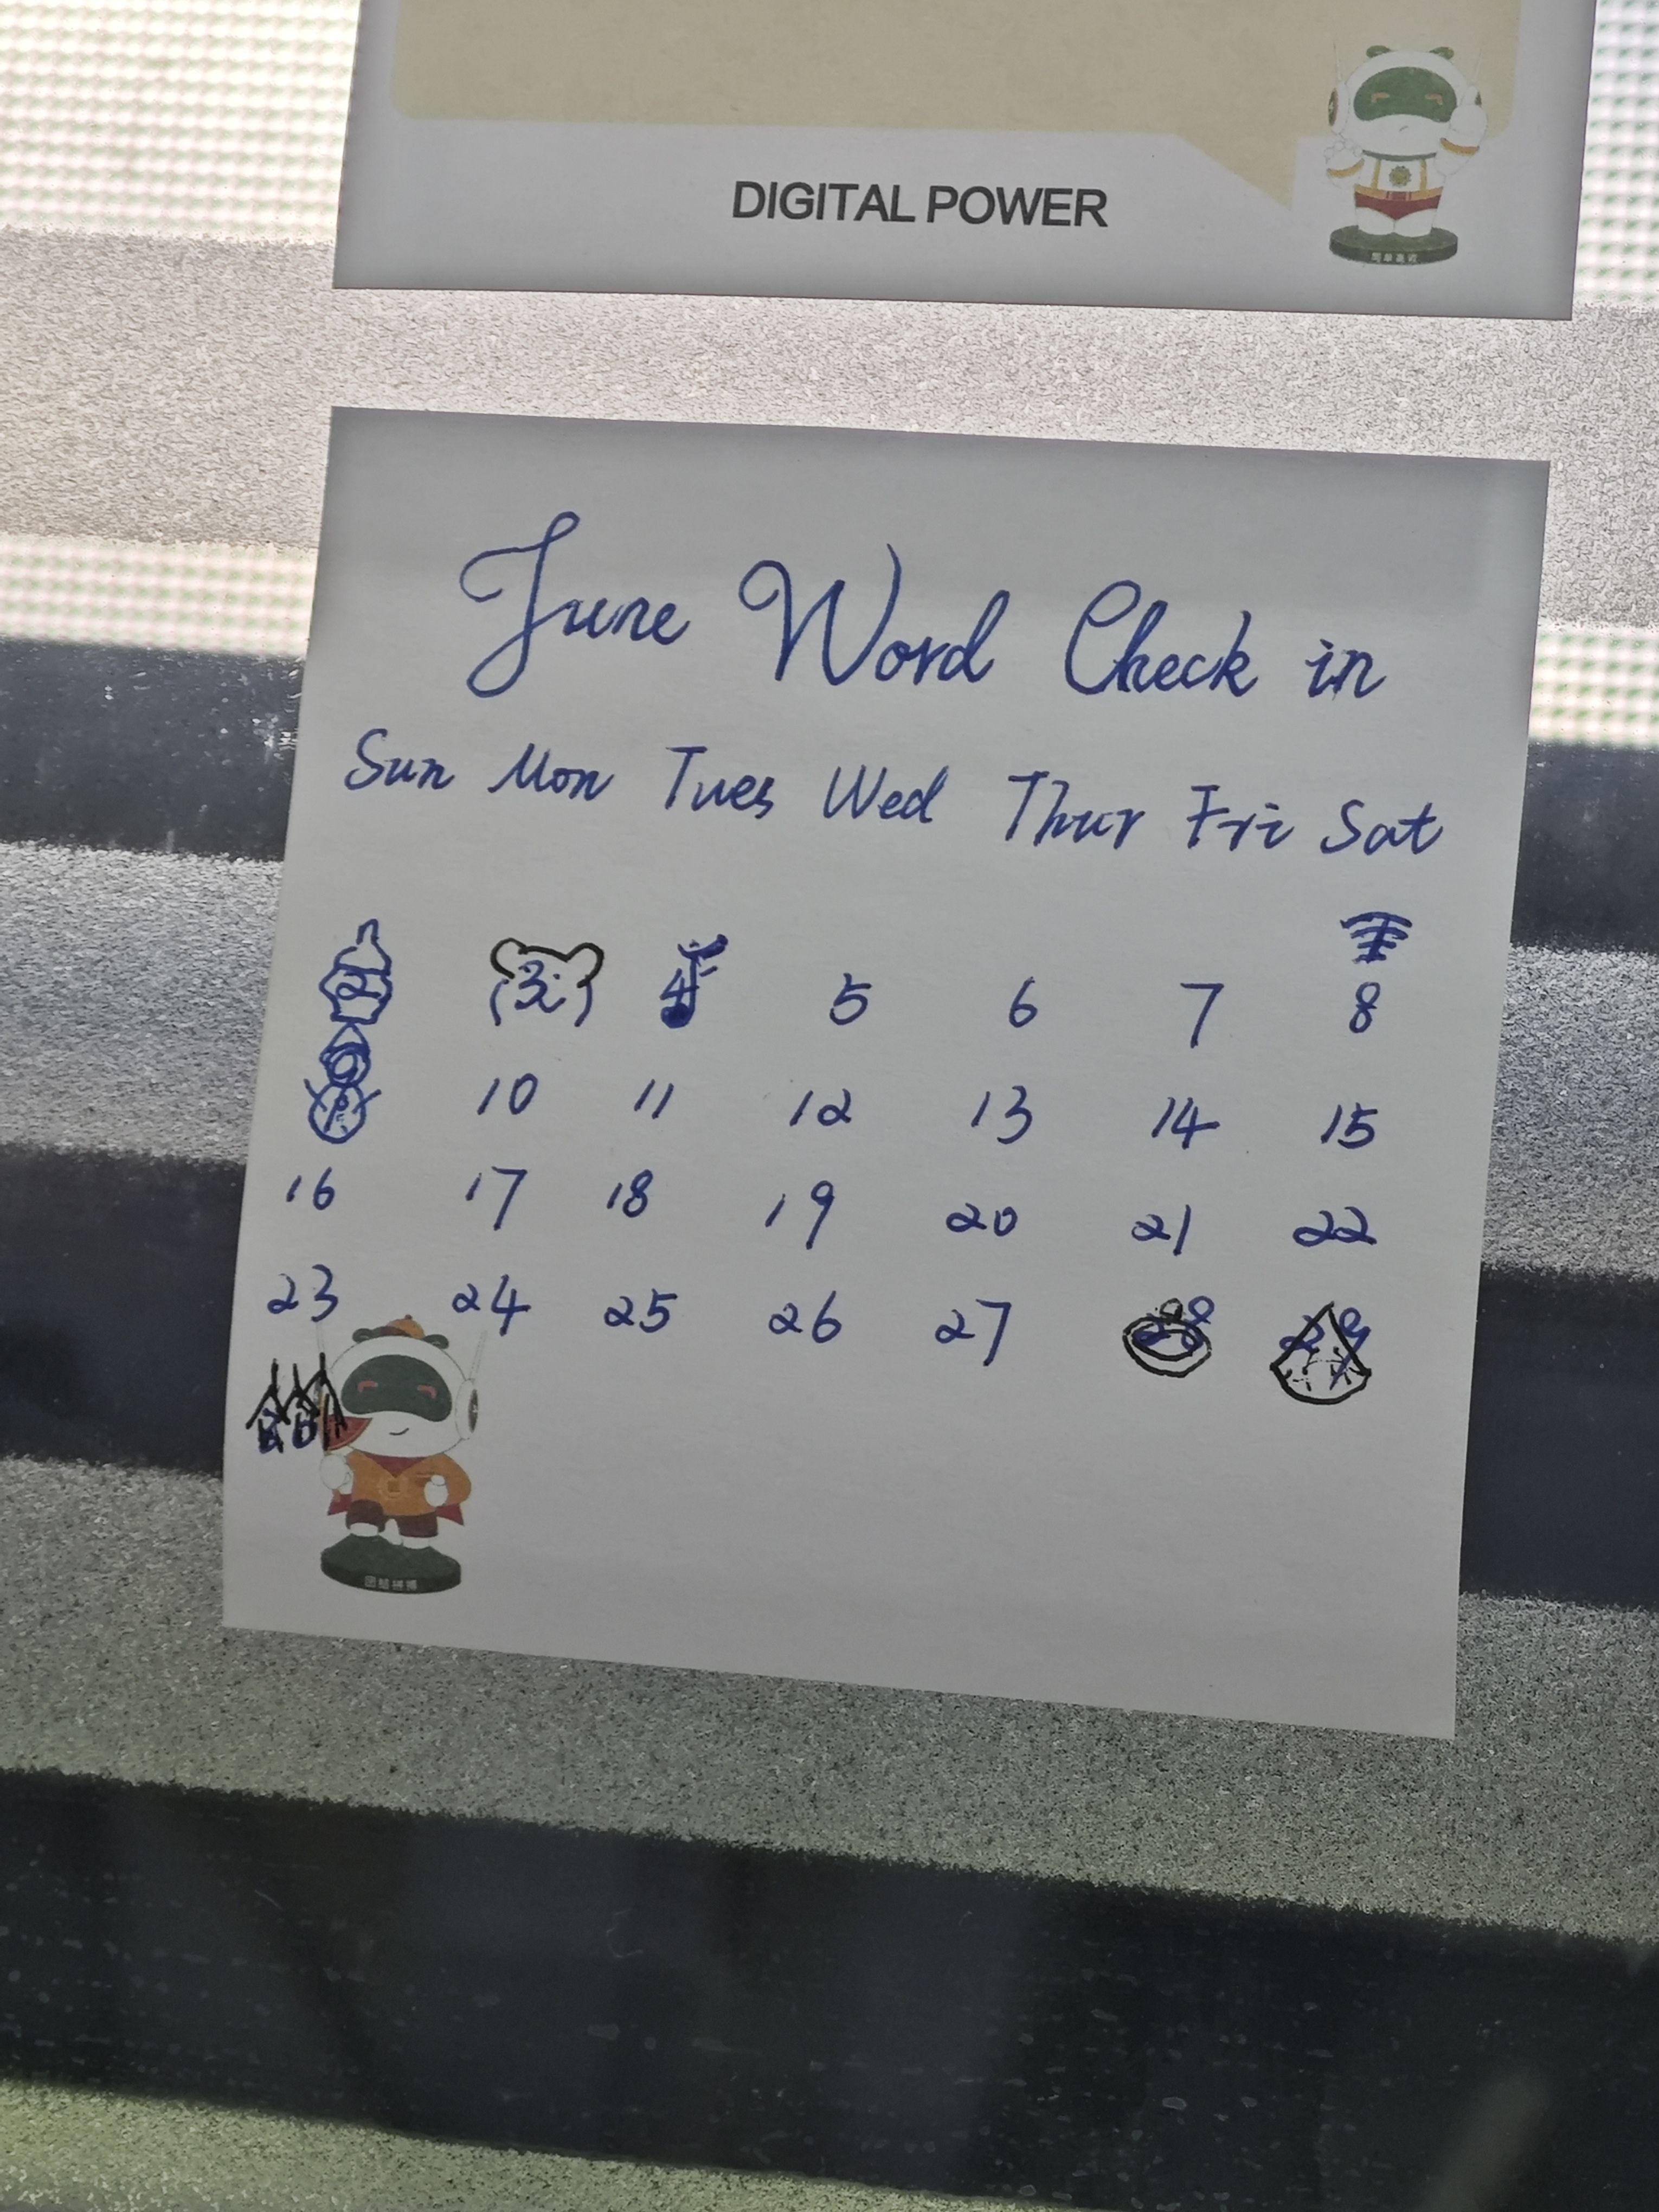 DIGITAL POWER
June Word Check in
Sun Mon Tues Wed Thur Fri Sat
2 3 4 5 6 7 8
9 10 11 12 13 14 15
16 17 18 19 20 21 22
23 24 25 26 27 28 29